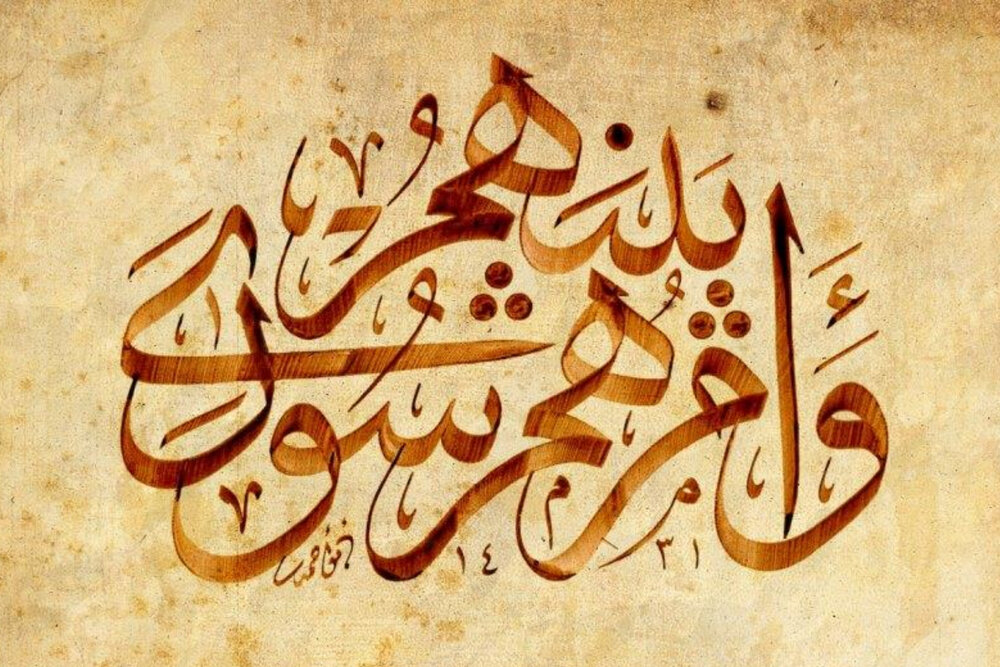 وَأَمْرُهُمْ شُورَىٰ
بَيْنَهُمْ
١٤٣١